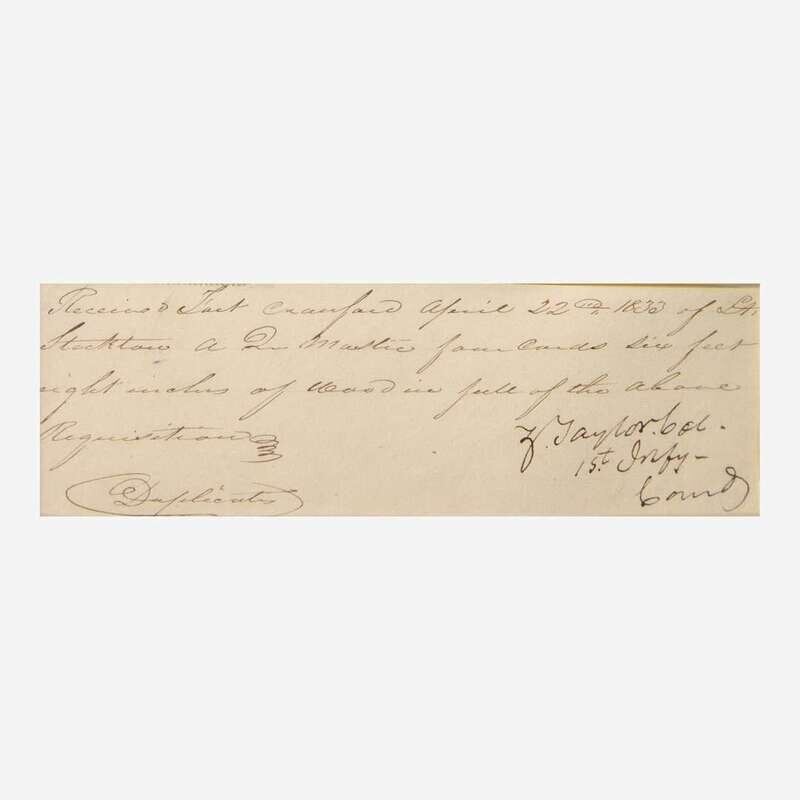 Receivd Fort Crawford April 22nd. 1833 of Lt.
Stockton A Qr Master four Cords six feet
eight inches of Wood in full of the above
Requisition
Z. Taylor. Col.
1st. Infy-
Comd
Duplicates